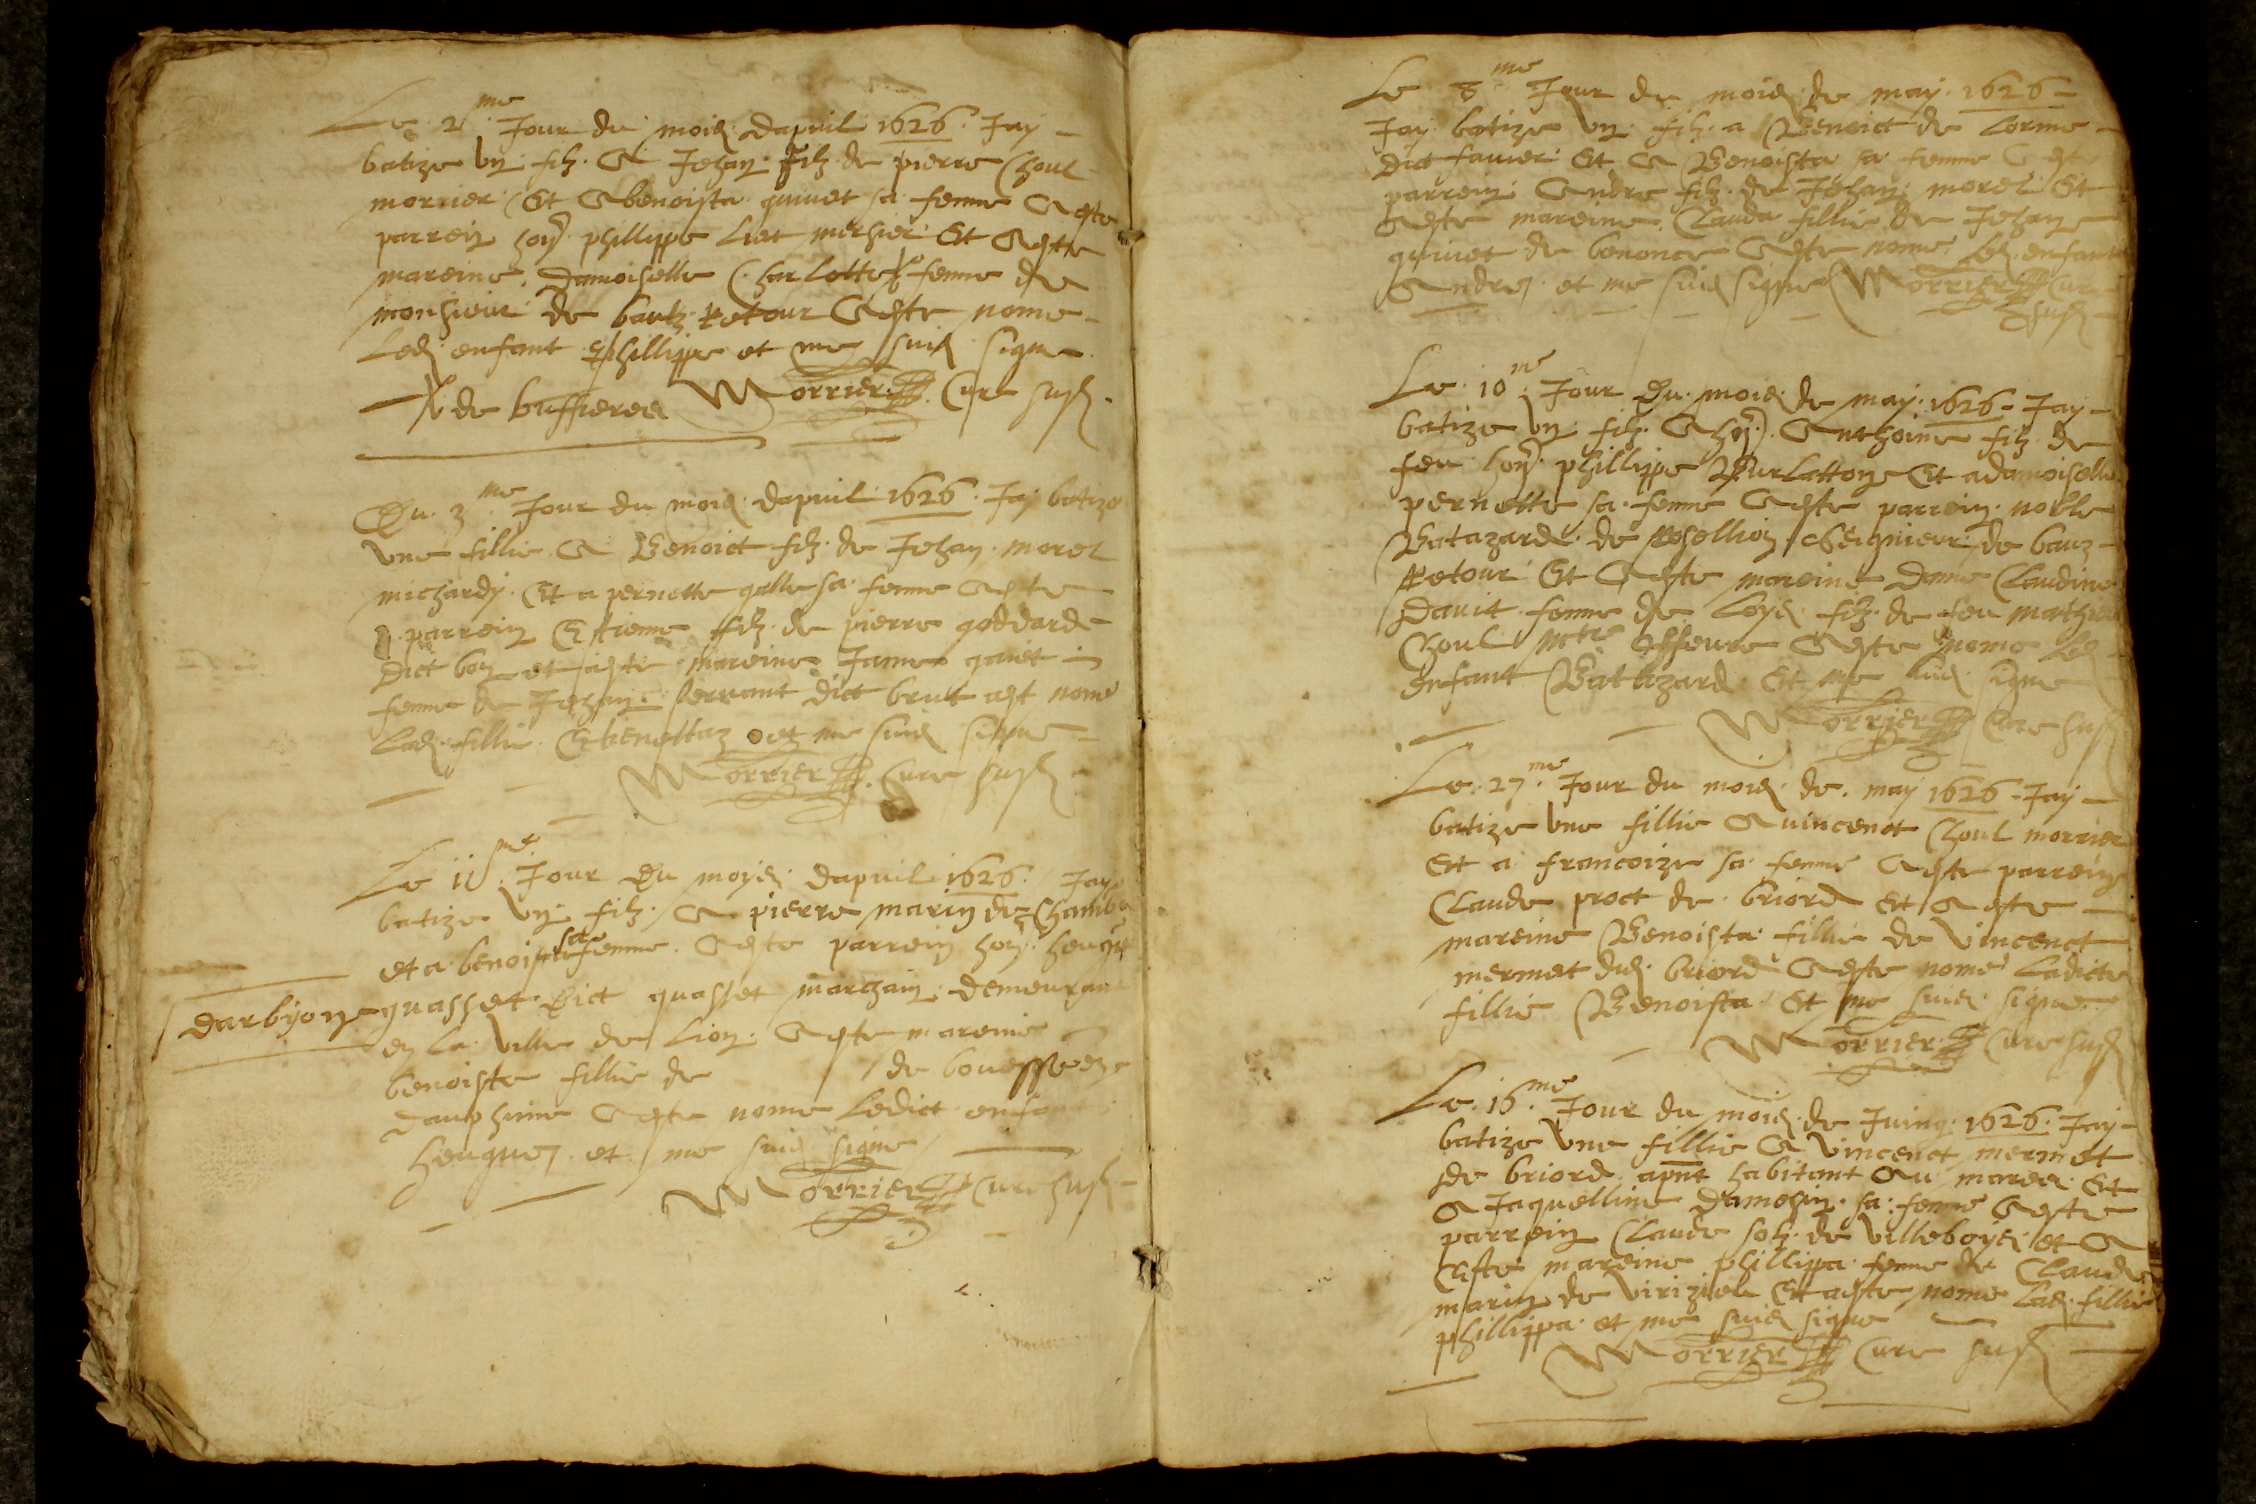 Le 2me Jour du mois dapuril 1626 Jay
batize un filz A Jehan filz de pierre Choul
morrier Et A benoista quinet sa femme A este
parrein hon. phillippe Liat mersier Et A este
mareine Damoiselle Charlotte femme de
monsieur de bautz retour A este nome
Led. enfant phillippe et me suis signe
de buffieres Morrier Cure susd.
Du 3me Jour du mois dapuril 1626 Jay batize
une fillie A Benoict filz de Jehan morel
michardy Et a pernette galle sa femme A este
parrein Etienne filz de pierre goddard
Dict bon et a este mareine Jame gariet
femme de Jehan servant dict brut a est nome
Lad. fillie et me suis signe
Morrier Cure susd.
Le 11me Jour Du moys dapuril 1626 Jay
batize un filz A pierre marin de Chamb
et a benoiste sa femme A este parrein hon. heugue
darbyon
quasset Dict quasset marchain demeurant
en La ville de Lion A este mareine
benoiste fillie de de bouesse en
dauphine A este nome Ledict enfant
heugues et me suis signe
Morrier Cure susd.
Le 8me Jour du mois de may 1626
Jay batize un filz a Benoict de Lorme
Dict fauier Et A Benoista sa femme A este
parrein Andre filz de Jehan morel Et
A este mareine Clauda fillie de Jehan
quinet de benonce A este nome Led. enfant
Andre et me suis signe Morrier Cure
susd.
Le 10me Jour Du mois de may 1626 Jay
batize un filz A hon. Anthoine filz de
feu hon. phillippe Burlatton Et a damoiselle
pernette sa femme A este parrein noble
Batazard de Rosellion Seignieur de bauz
Retour Et A este mareine Dame Claudine
Davit femme de Loys filz de feu mathieu
Choul A este nome Led.
Enfant Batazard Et me suis signe
Morrier Cure susd.
Le 27me Jour du mois de may 1626 Jay
batize une fillie A vincenct Choul morrier
Et a francoize sa femme A este parrein
Claude proct de briord Et A este
mareine Benoista fillie de vincenct
mermet dud. briord A este nome Ladicte
fillie Benoista Et me suis signe
Morrier Cure susd.
Le 16me Jour du mois de Juing 1626 Jay
batize une fillie A vincenct mermet
de briord apnt habitant Au mares Et
A Jaquelline Damohin sa femme A este
parrein Claude de villeboys et A
Este mareine phillippa femme de Claude
marin de viriziel Et a este nome Lad. fillie
phillippa et me suis signe
Morrier Cure susd.